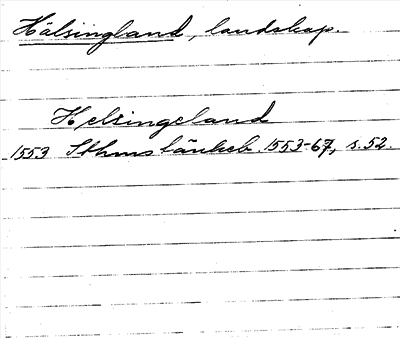 Hälsingland, landskap.
Helsingeland
1553 Sthms tänkeb. 1553-67, s. 52.